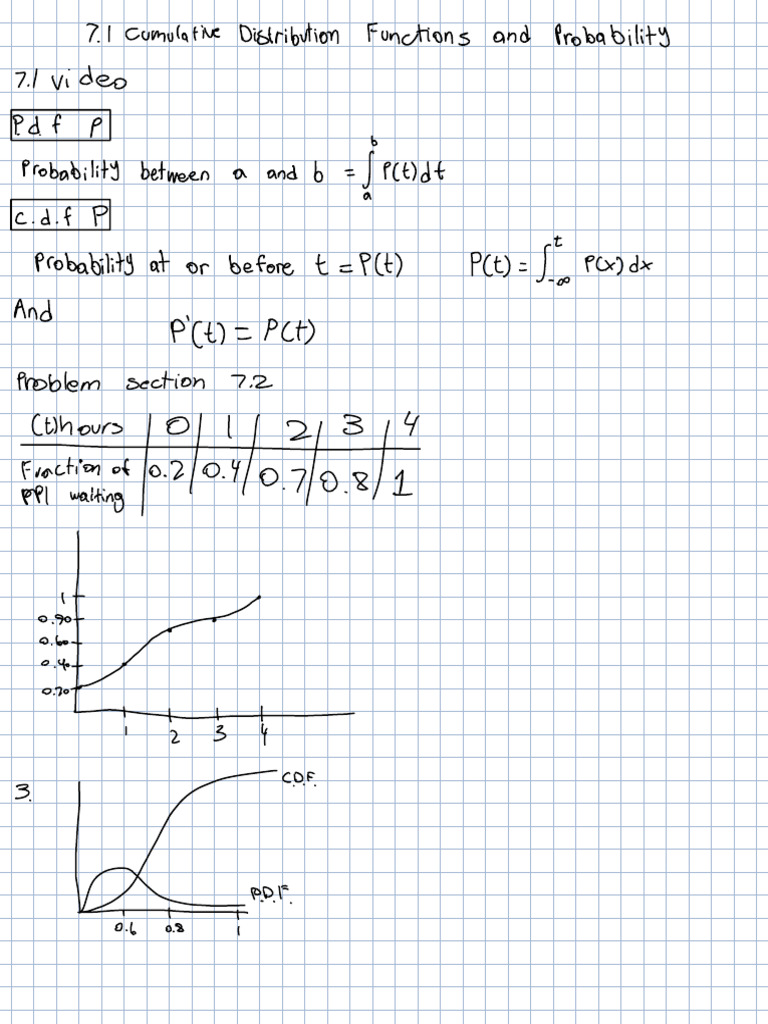 7.1 Cumulative Distribution Functions and Probability
7.1 video
P.d f p
Probability between a and b = ∫ₐᵇ P(t)dt
c.d.f P
Probability at or before t = P(t) P(t) = ∫_{-∞}^{t} P(x)dx
And
P'(t) = P(t)
Problem section 7.2
(t)hours | 0 | 1 | 2 | 3 | 4
Fraction of PPl waiting | 0.2 | 0.4 | 0.7 | 0.8 | 1
1
0.90
0.60
0.40
0.20
1 2 3 4
3.
C.D.F.
P.D.F.
0.6 0.8 1